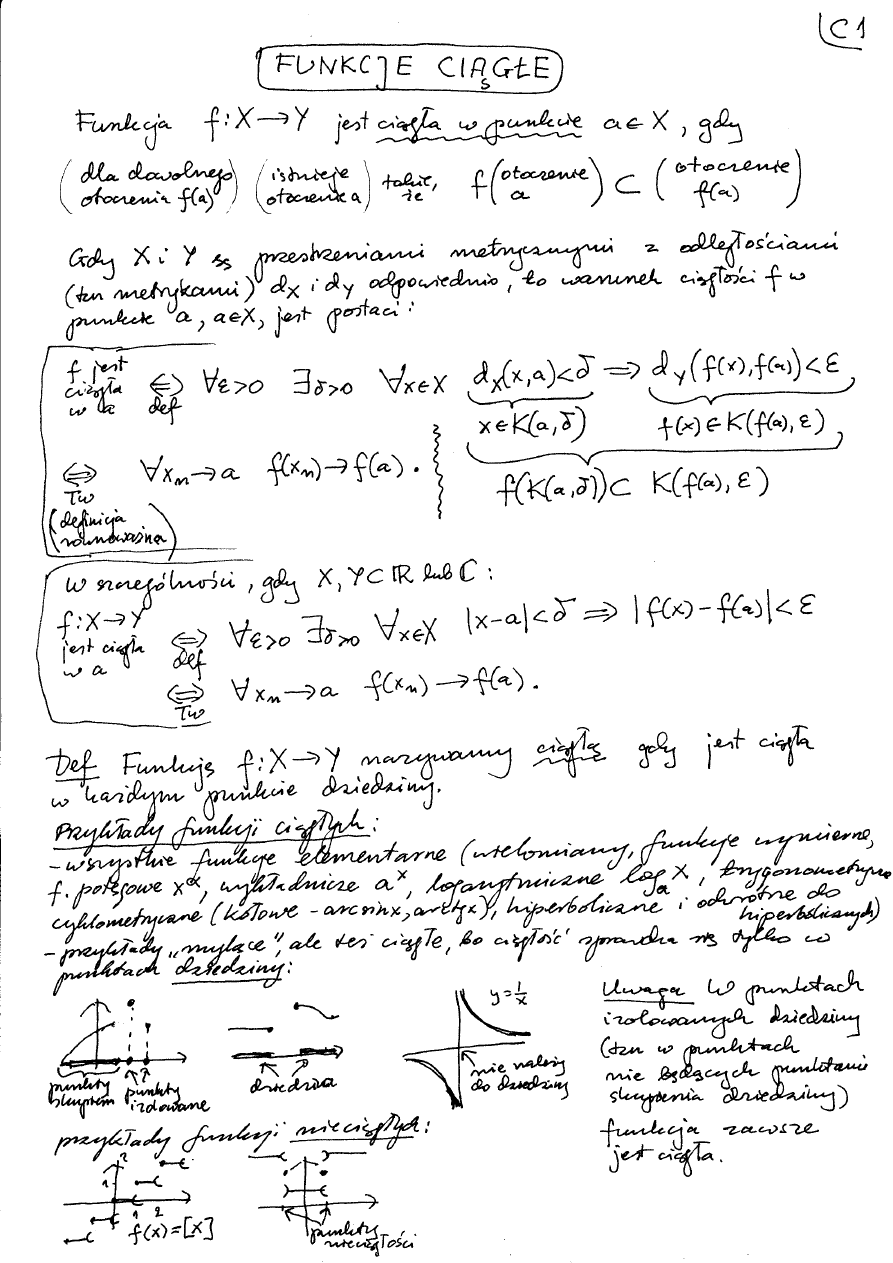 C1
FUNKCJE CIĄGŁE
Funkcja f: X → Y jest ciągła w punkcie a ∈ X, gdy
(dla dowolnego otoczenia f(a)) (istnieje otoczenie a) takie, że f(otoczenie a) ⊂ (otoczenie f(a))
Gdy X i Y są przestrzeniami metrycznymi z odległościami
(tzn metrykami) dX i dY odpowiednio, to warunek ciągłości f w
punkcie a, a∈X, jest postaci:
f jest ciągła w a ⇔ def ∀ε>0 ∃δ>0 ∀x∈X dX(x,a)<δ ⇒ dY(f(x),f(a))<ε
x∈K(a,δ) f(x)∈K(f(a),ε)
⇔ Tw ∀xn→a f(xn)→f(a).
f(K(a,δ))⊂ K(f(a),ε)
(definicja równoważna)
W szczególności, gdy X, Y⊂ℝ lub ℂ:
f: X→Y jest ciągła w a ⇔ def ∀ε>0 ∃δ>0 ∀x∈X |x-a|<δ ⇒ |f(x)-f(a)|<ε
⇔ Tw ∀xn→a f(xn)→f(a).
Def Funkcję f: X→Y nazywamy ciągłą gdy jest ciągła
w każdym punkcie dziedziny.
Przykłady funkcji ciągłych:
- wszystkie funkcje elementarne (wielomiany, funkcje wymierne,
f. potęgowe x^α, wykładnicze a^x, logarytmiczne log_a x, trygonometryczne
cyklometryczne (kołowe - arcsinx, arctgx), hiperboliczne i odwrotne do hiperbolicznych)
- przykłady „mylące”, ale też ciągłe, bo ciągłość sprawdza się tylko w
punktach dziedziny:
punkty skupienia
punkty izolowane
dziedzina
y=1/x
nie należy do dziedziny
Uwaga W punktach
izolowanych dziedziny
(tzn w punktach
nie będących punktami
skupienia dziedziny)
funkcja zawsze
jest ciągła.
przykłady funkcji nieciągłych:
2
1
1 2
f(x)=[x]
punkty nieciągłości